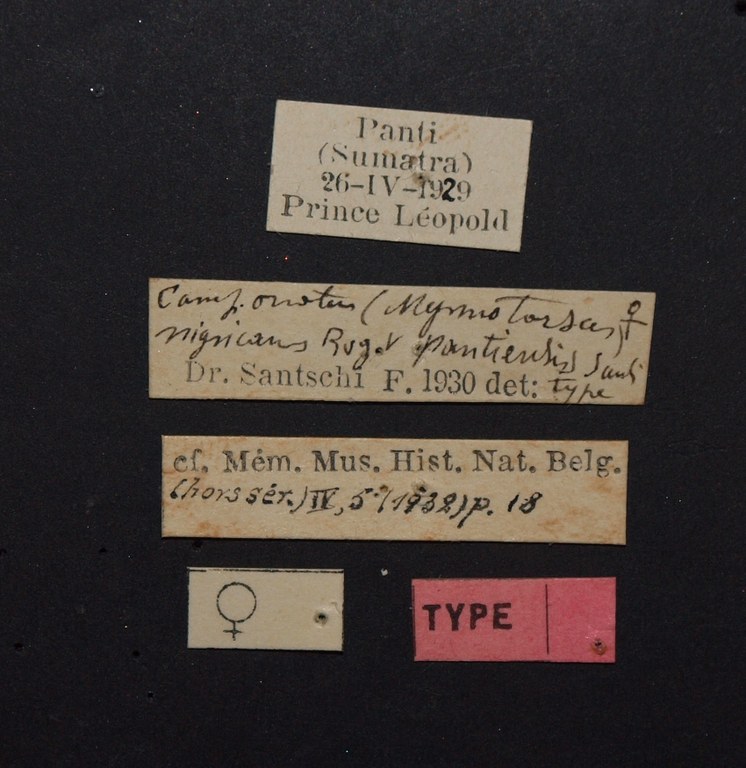 Panti
(Sumatra)
26-IV-1929
Prince Léopold
Camponotus (Myrmotarsus) ☿
nigricans Rog. v pantiensis Sants
Dr. Santschi F. 1930 det: type
cf. Mém. Mus. Hist. Nat. Belg.
(hors sér.) IV, 5 (1932) p. 18
♀
TYPE